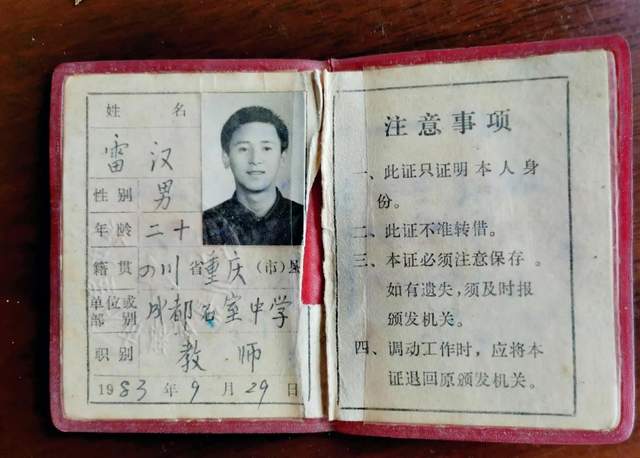 姓 名
雷汉
性别 男
年龄 二十
籍贯 四川省重庆(市)县
单位或部别 成都石室中学
职别 教师
1983年9月29日
注意事项
一、此证只证明本人身
份。
二、此证不准转借。
三、本证必须注意保存。
如有遗失,须及时报
颁发机关。
四、调动工作时,应将本
证退回原颁发机关。